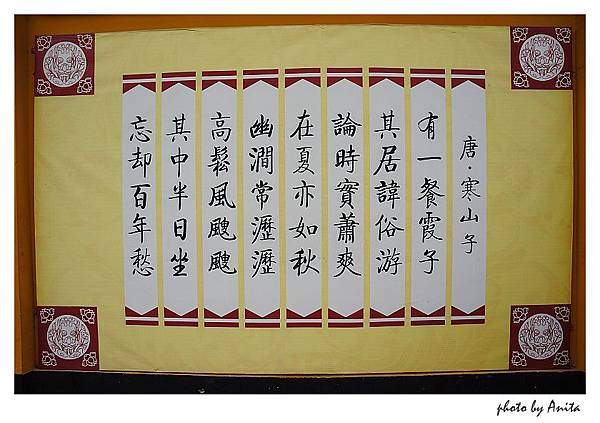 唐·寒山子
有一餐霞子
其居諱俗游
論時實蕭爽
在夏亦如秋
幽澗常瀝瀝
高鬆風颼颼
其中半日坐
忘却百年愁
photo by Anita